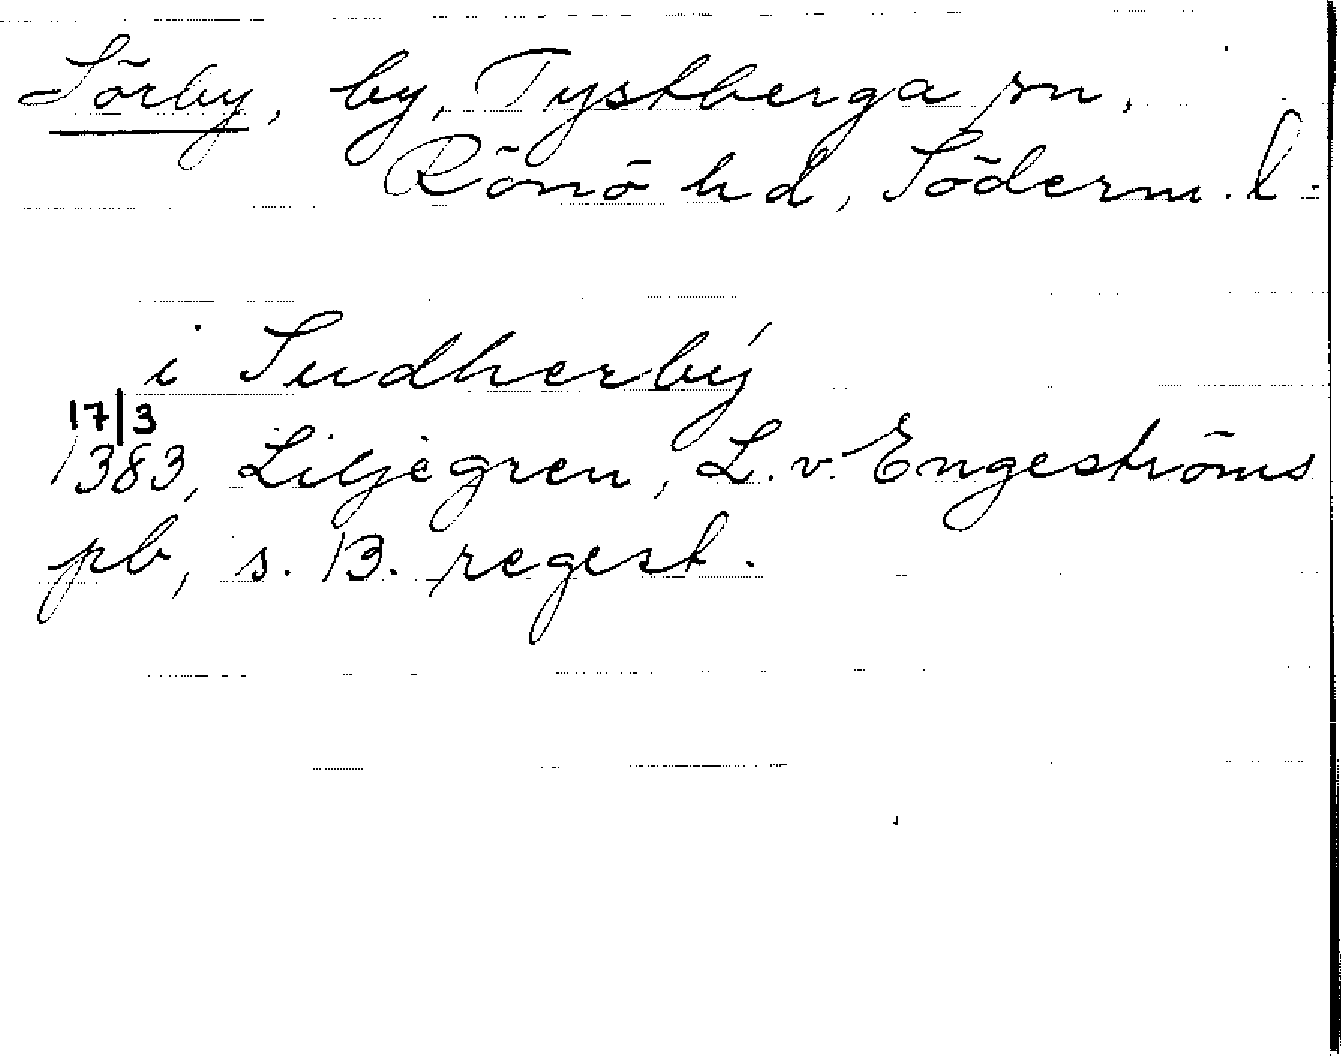 Sörby, by, Tystberga sn,
Rönö hd, Söderm. l.
i Sudherbý
17/3
1383, Liljegren, L. v. Engeströms
pb, s. 13. regest.